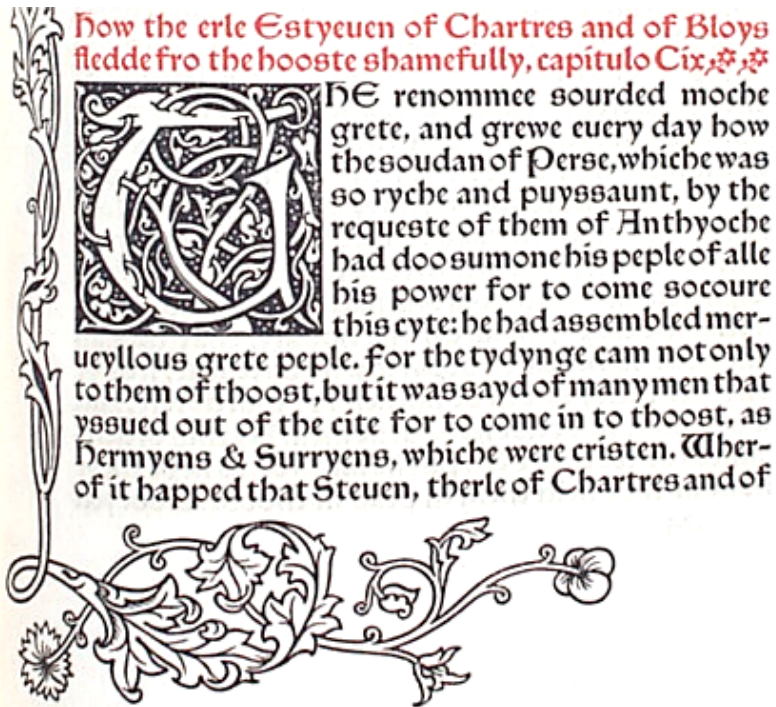 How the erle Estyeuen of Chartres and of Bloys
fledde fro the hooste shamefully, capitulo Cix
THE renommee sourded moche
grete, and grewe euery day how
the soudan of Perse, whiche was
so ryche and puyssaunt, by the
requeste of them of Anthyoche
had doo sumone his peple of alle
his power for to come socoure
this cyte: he had assembled mer-
ueyllous grete peple. For the tydynge cam not only
to them of thoost, but it was sayd of many men that
yssued out of the cite for to come in to thoost, as
Hermyens & Surryens, whiche were cristen. Wher-
of it happed that Steuen, therle of Chartres and of